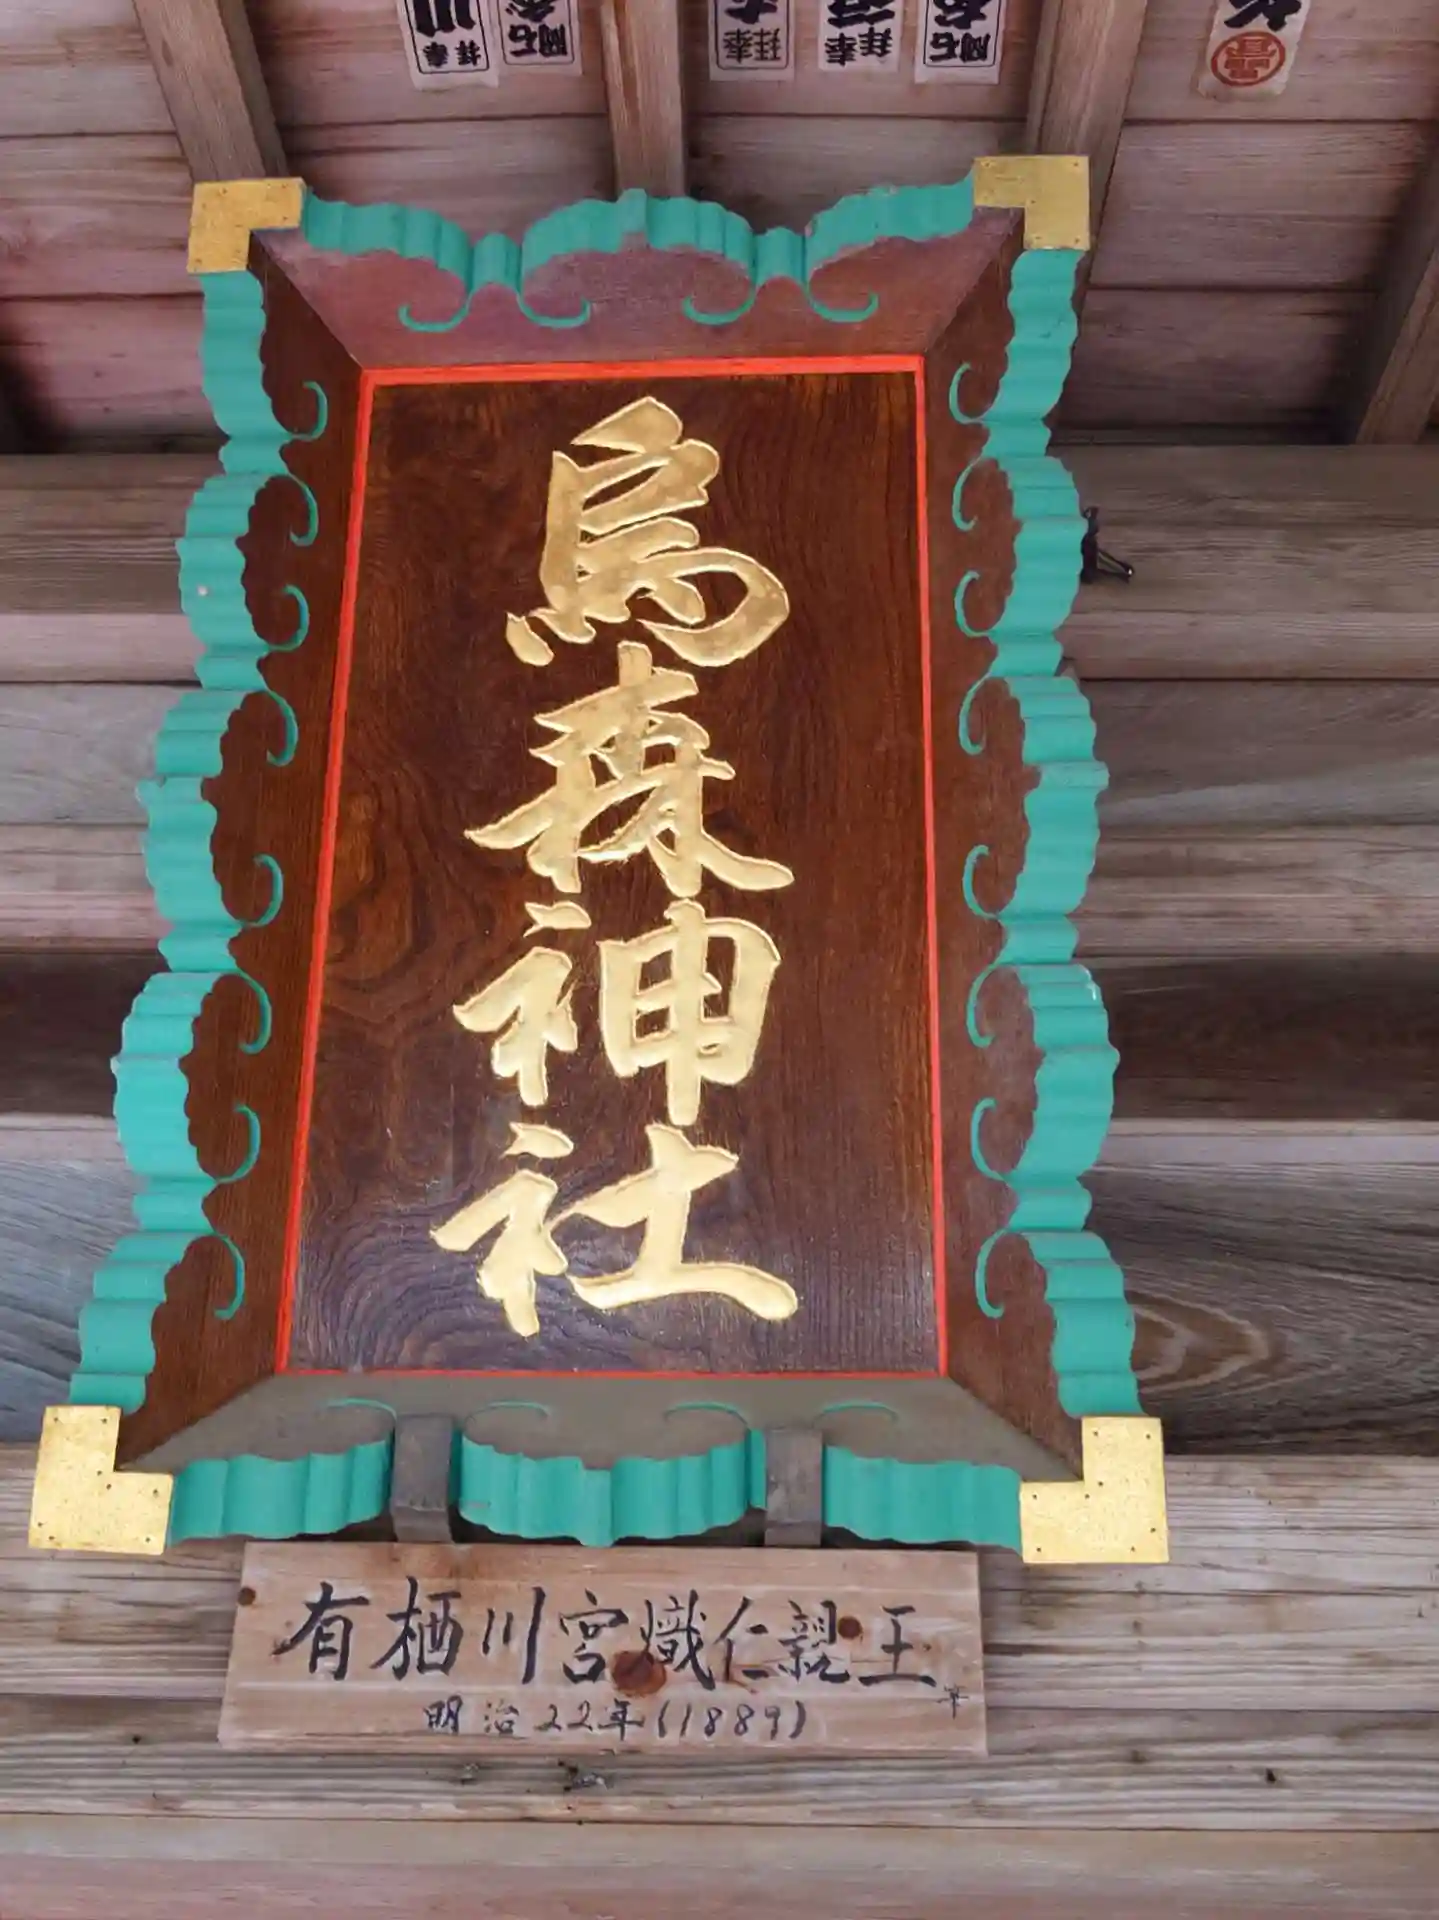 烏森神社
有栖川宮熾仁親王筆
明治22年(1889)